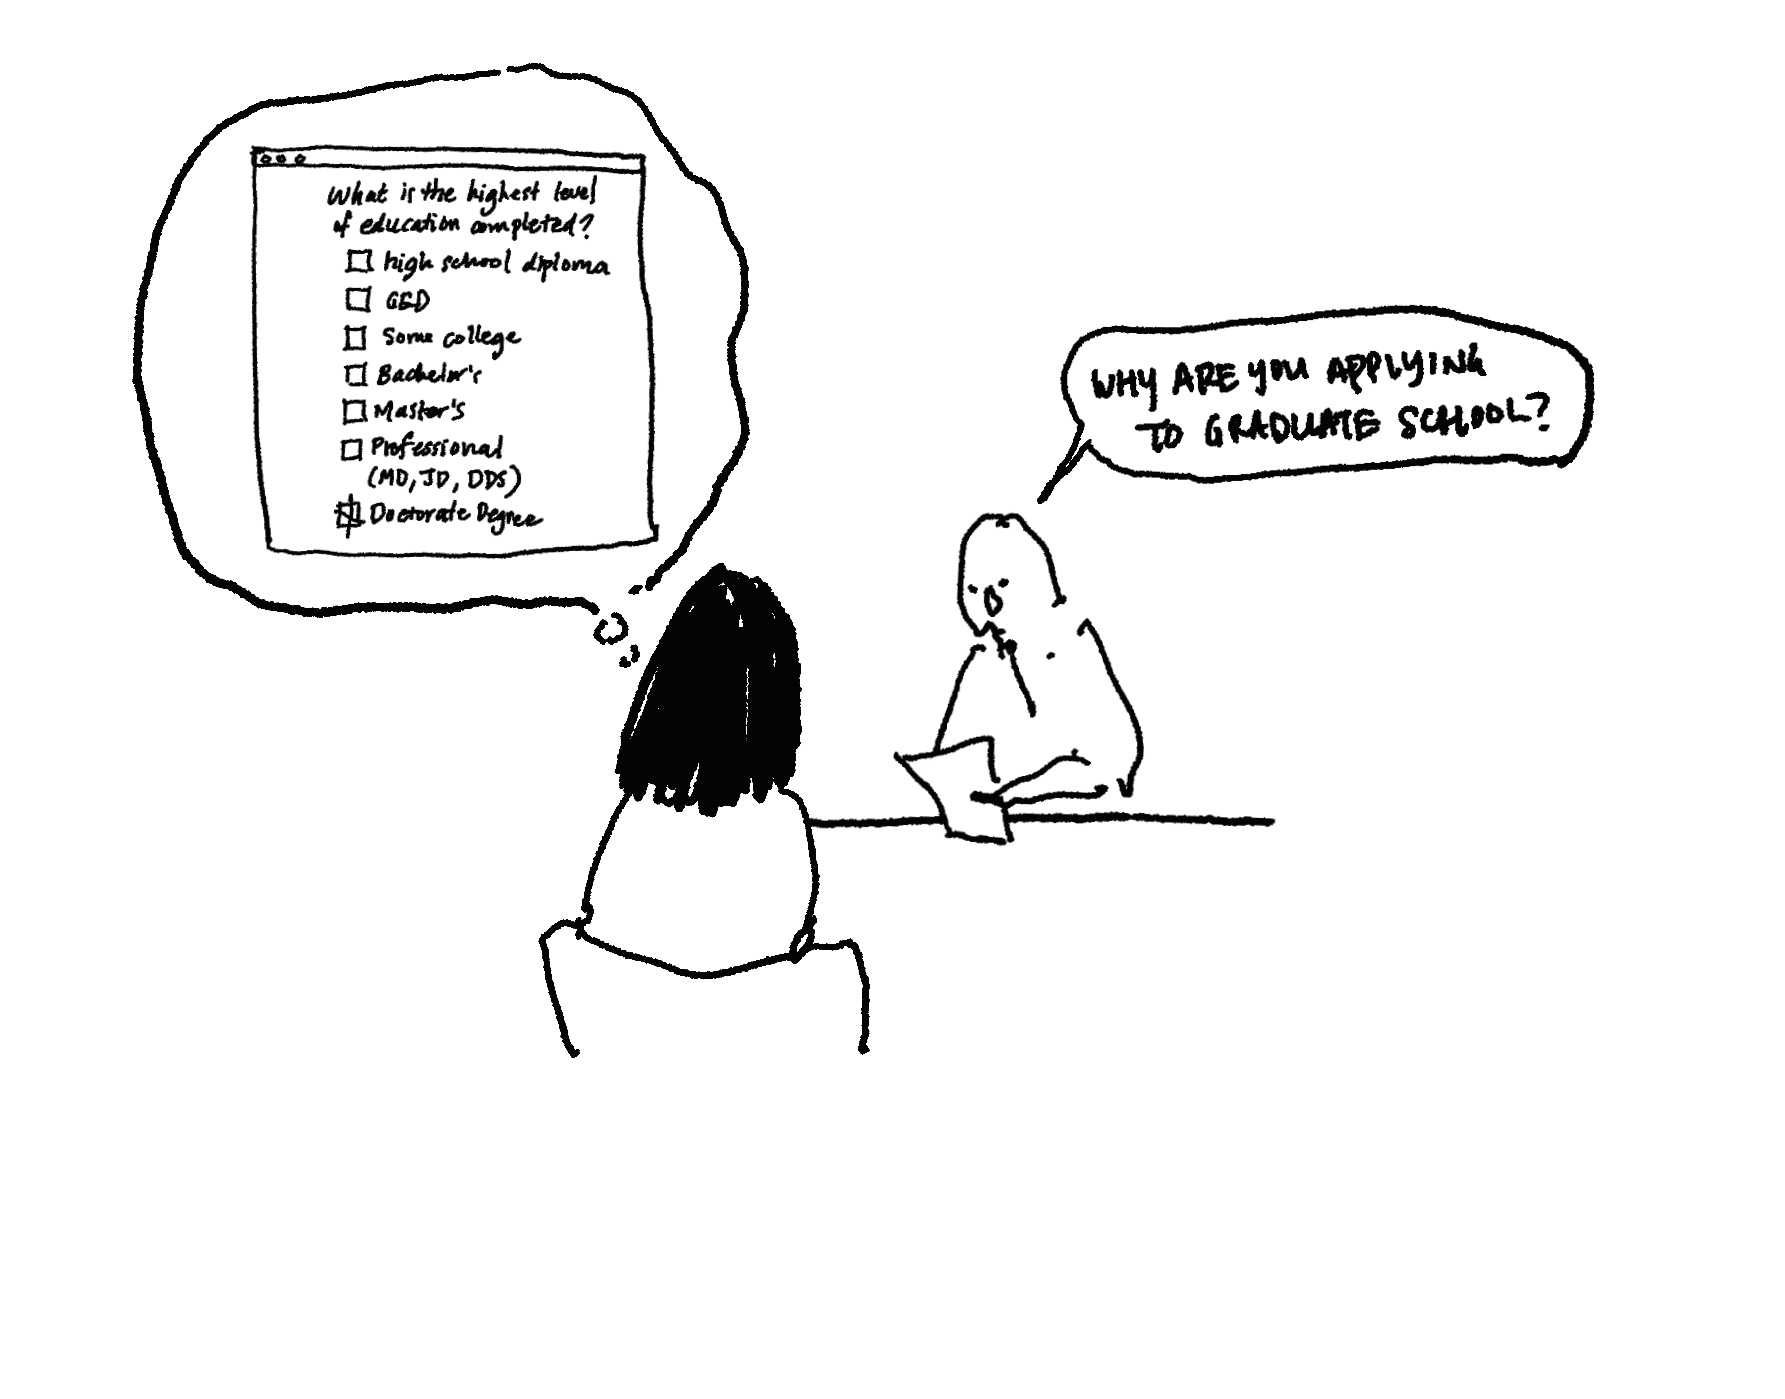 What is the highest level
of education completed?
high school diploma
GED
Some college
Bachelor's
Master's
Professional
(MD, JD, DDS)
Doctorate Degree
WHY ARE YOU APPLYING
TO GRADUATE SCHOOL?